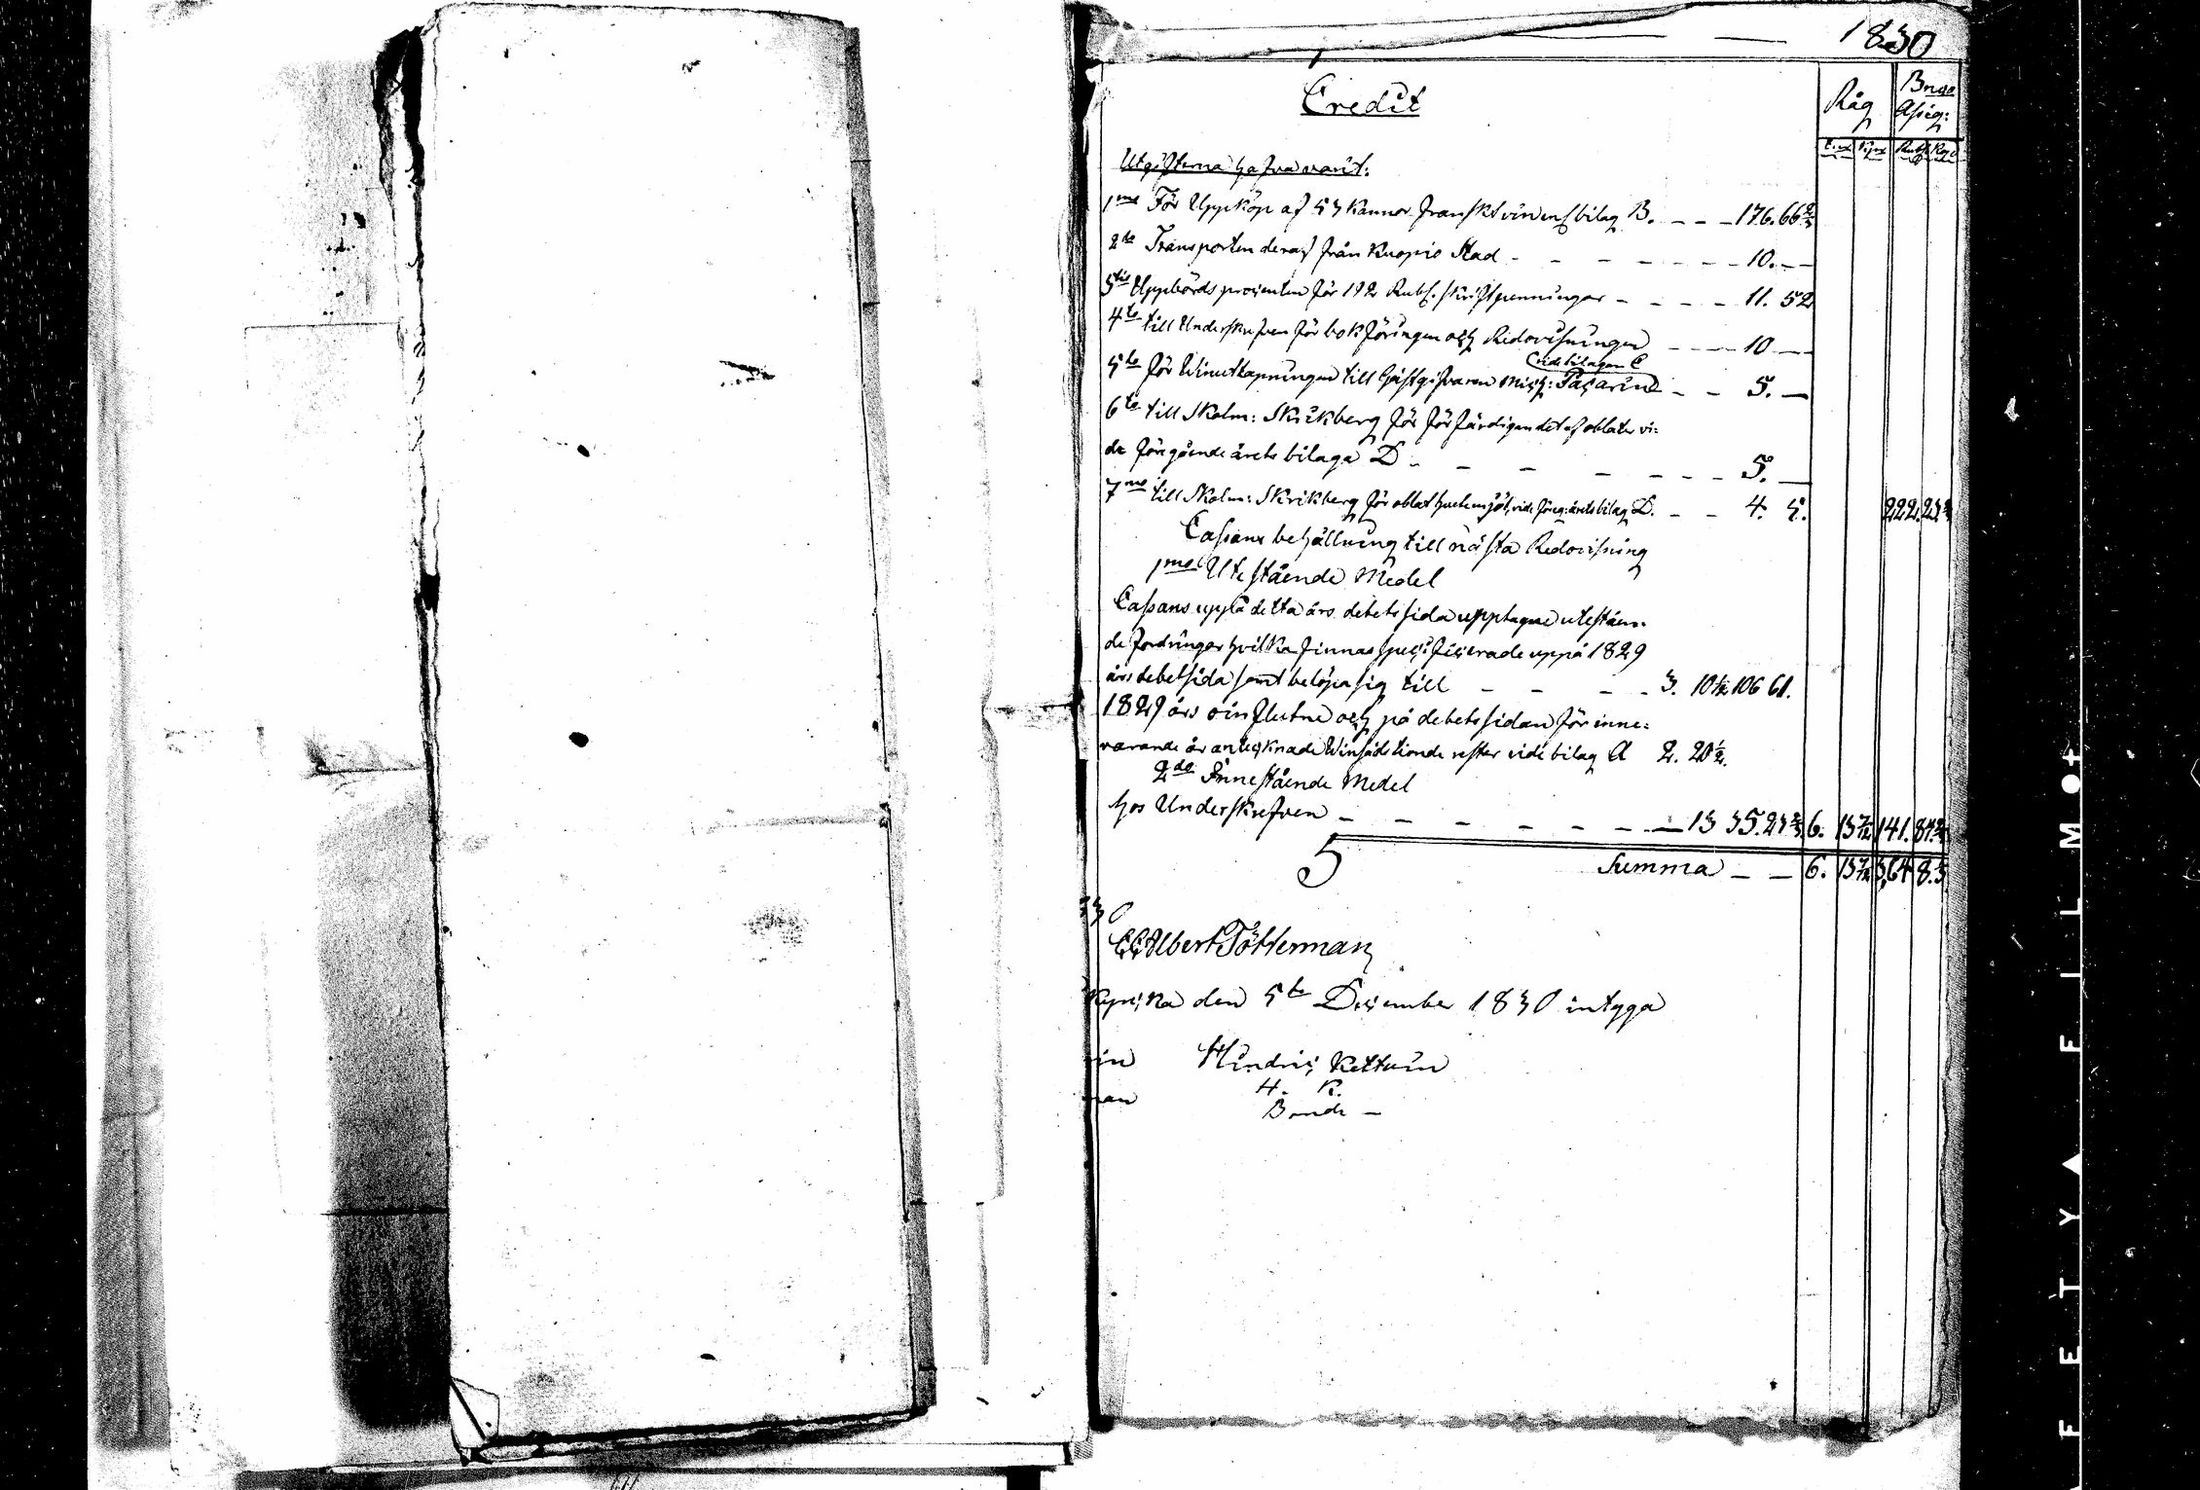 1830
Credit
Råg
Bnco Assig:
Utgifterna hafva varit:
1mo För Uppköp af 53 Kannor franskt vin enl bilag B. - - - 176.66 2/3
2do Transporten deraf från Kuopio Stad - - - - - - 10.—
3tio Uppbörds procenten för 192 Rub. skriftpenningar - - - - 11. 52
4to till Underskrefven för bokföringen och Redovisningen - - - 10 —
(vide bilagan C
5to för Winuttapningen till Gästgifvaren Mich: Pasarine - - 5. —
6to till Skolm: Skrikberg för förfärdigandet af oblater vi:
de föregående årets bilaga D - - - - - - 5. —
7mo till Skolm: Skrikberg för oblat hvetemjöl, vide föreg: årets bilag D. - - 4. 5. 222. 23 2/3
Cassans behållning till nästa Redovisning
1mo Utestående Medel
Cassans uppå detta års debetsida upptagne utestaen:
de fordringar hvilka finnas specificerade uppå 1829
års debetsida samt belöpa sig till - - - - 3. 10 1/12 106 61.
1829 års oinflutne och på debetsidan för inne:
varande år antecknade Winsädstionde rester vide bilag A 2. 20 1/2.
2do Innestående Medel
hos Underskrefven - - - - - - — 13 35.23 2/3 6. 13 7/12 141. 84 2/3
Summa - - 6. 13 7/12 364 8.3
5
C G Albert Tötterman
Kyrcka den 5te December 1830 intyga
in Hindric Kettuin
man H. K.
Bonde -
SAFETY ▲ FILM ●+